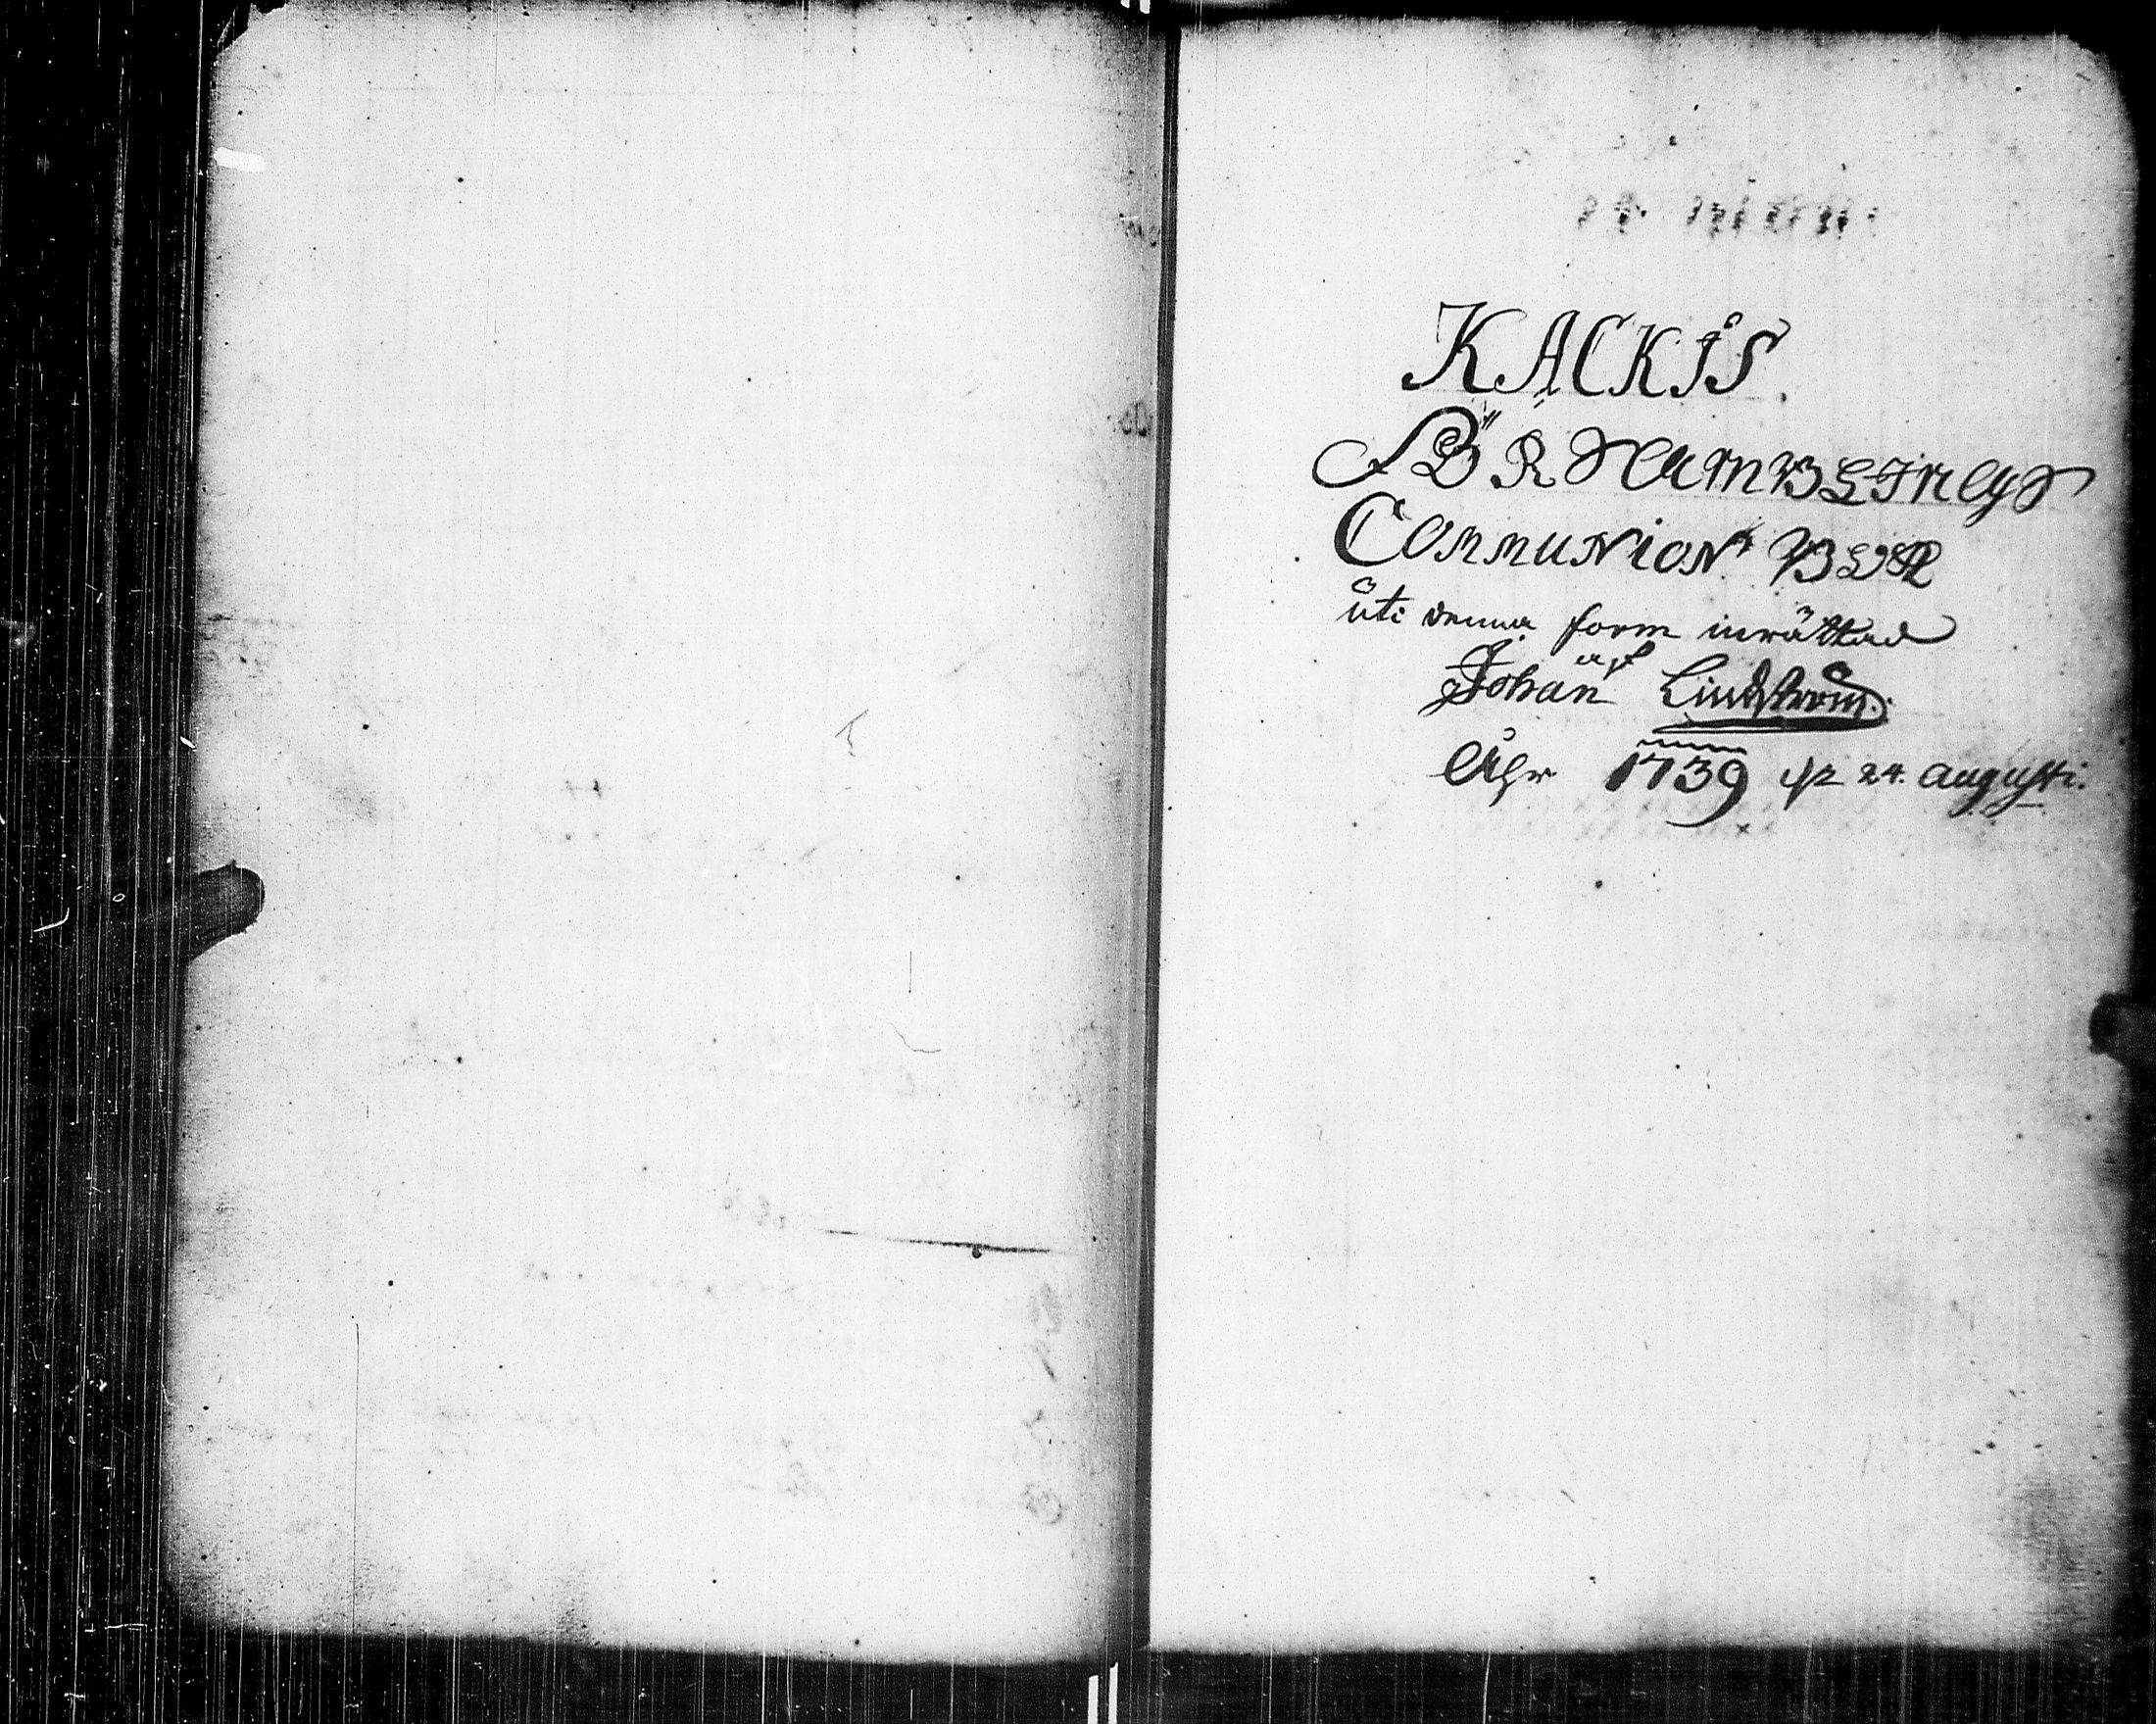 KACKIS
FÖRSAMBLINGS
COMMUNION BOK
uti denna form inrättad
af
Johan Lindström.
Åhr 1739 d. 24. Augusti.